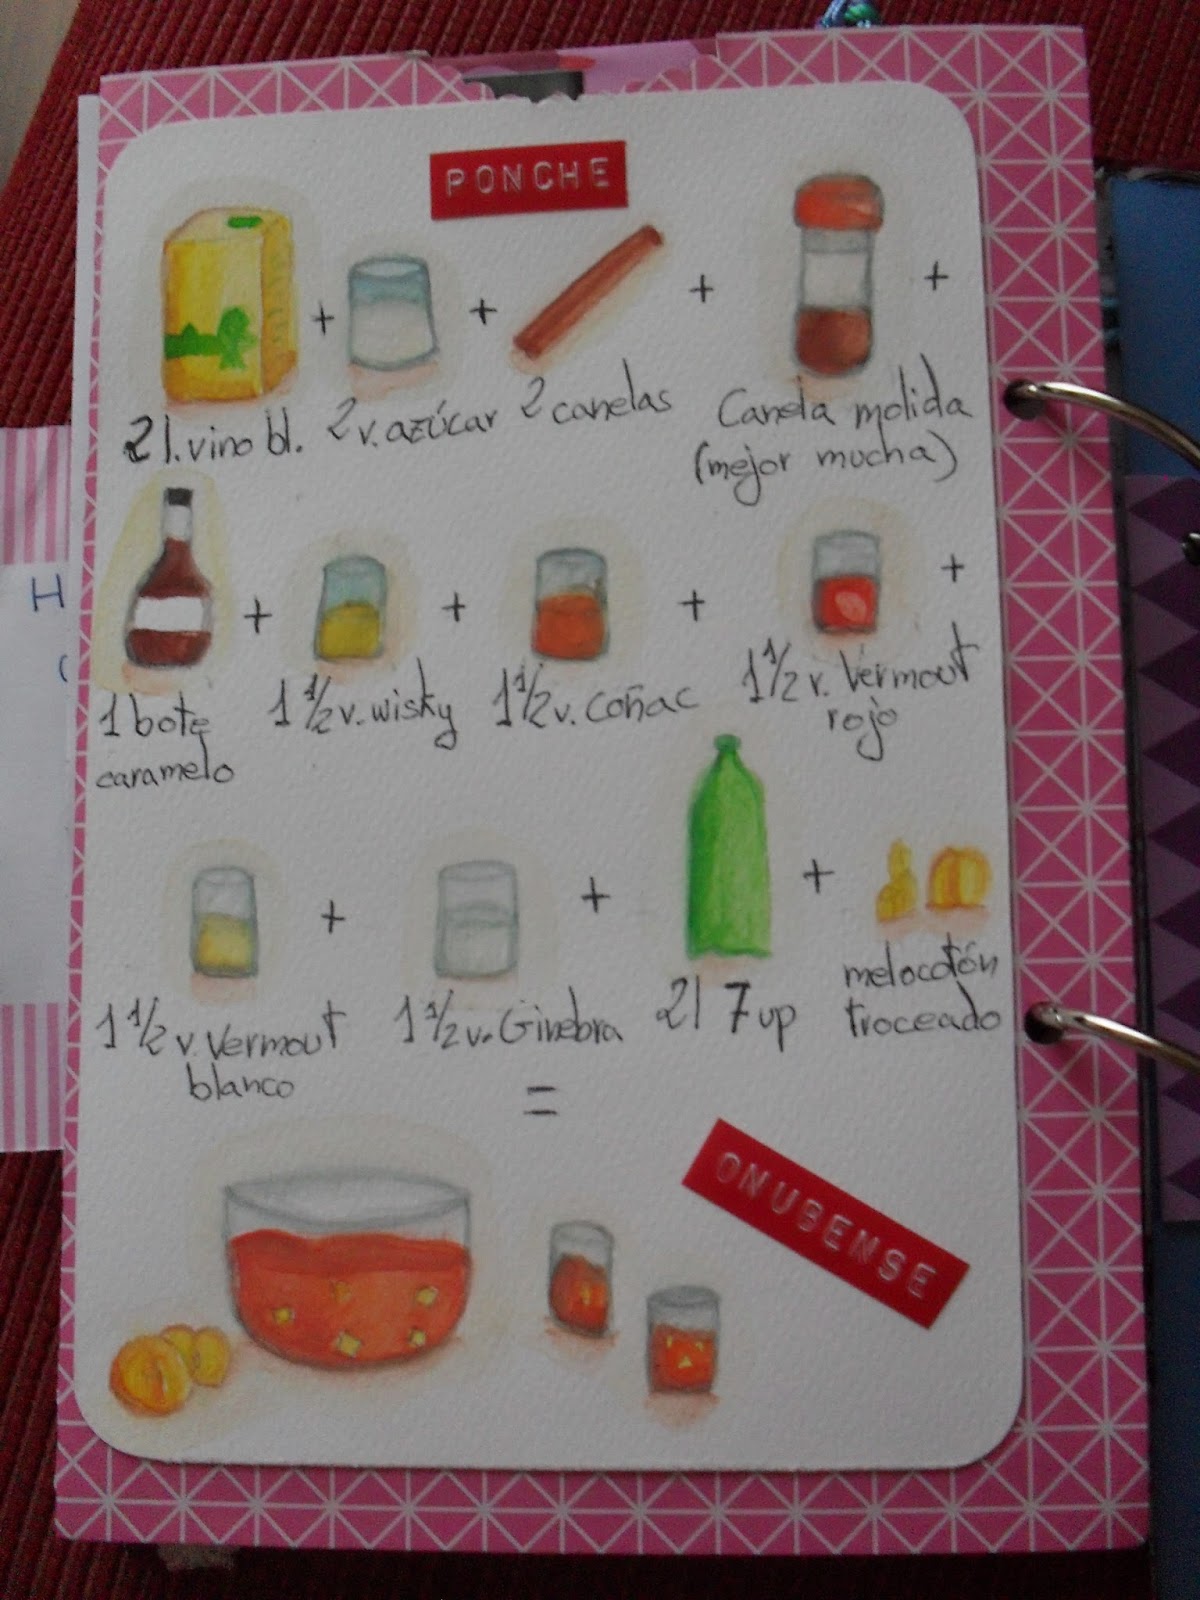 PONCHE
+ + + +
2 l. vino bl. 2 v. azúcar 2 canelas Canela molida
(mejor mucha)
+ + + +
1 bote 1 1/2 v. wisky 1 1/2 v. coñac 1 1/2 v. Vermout
caramelo rojo
+ + +
1 1/2 v. Vermout 1 1/2 v. Ginebra 2l 7up melocotón
blanco troceado
=
ONUBENSE
H